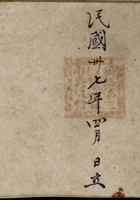 民國卅七年四月日立